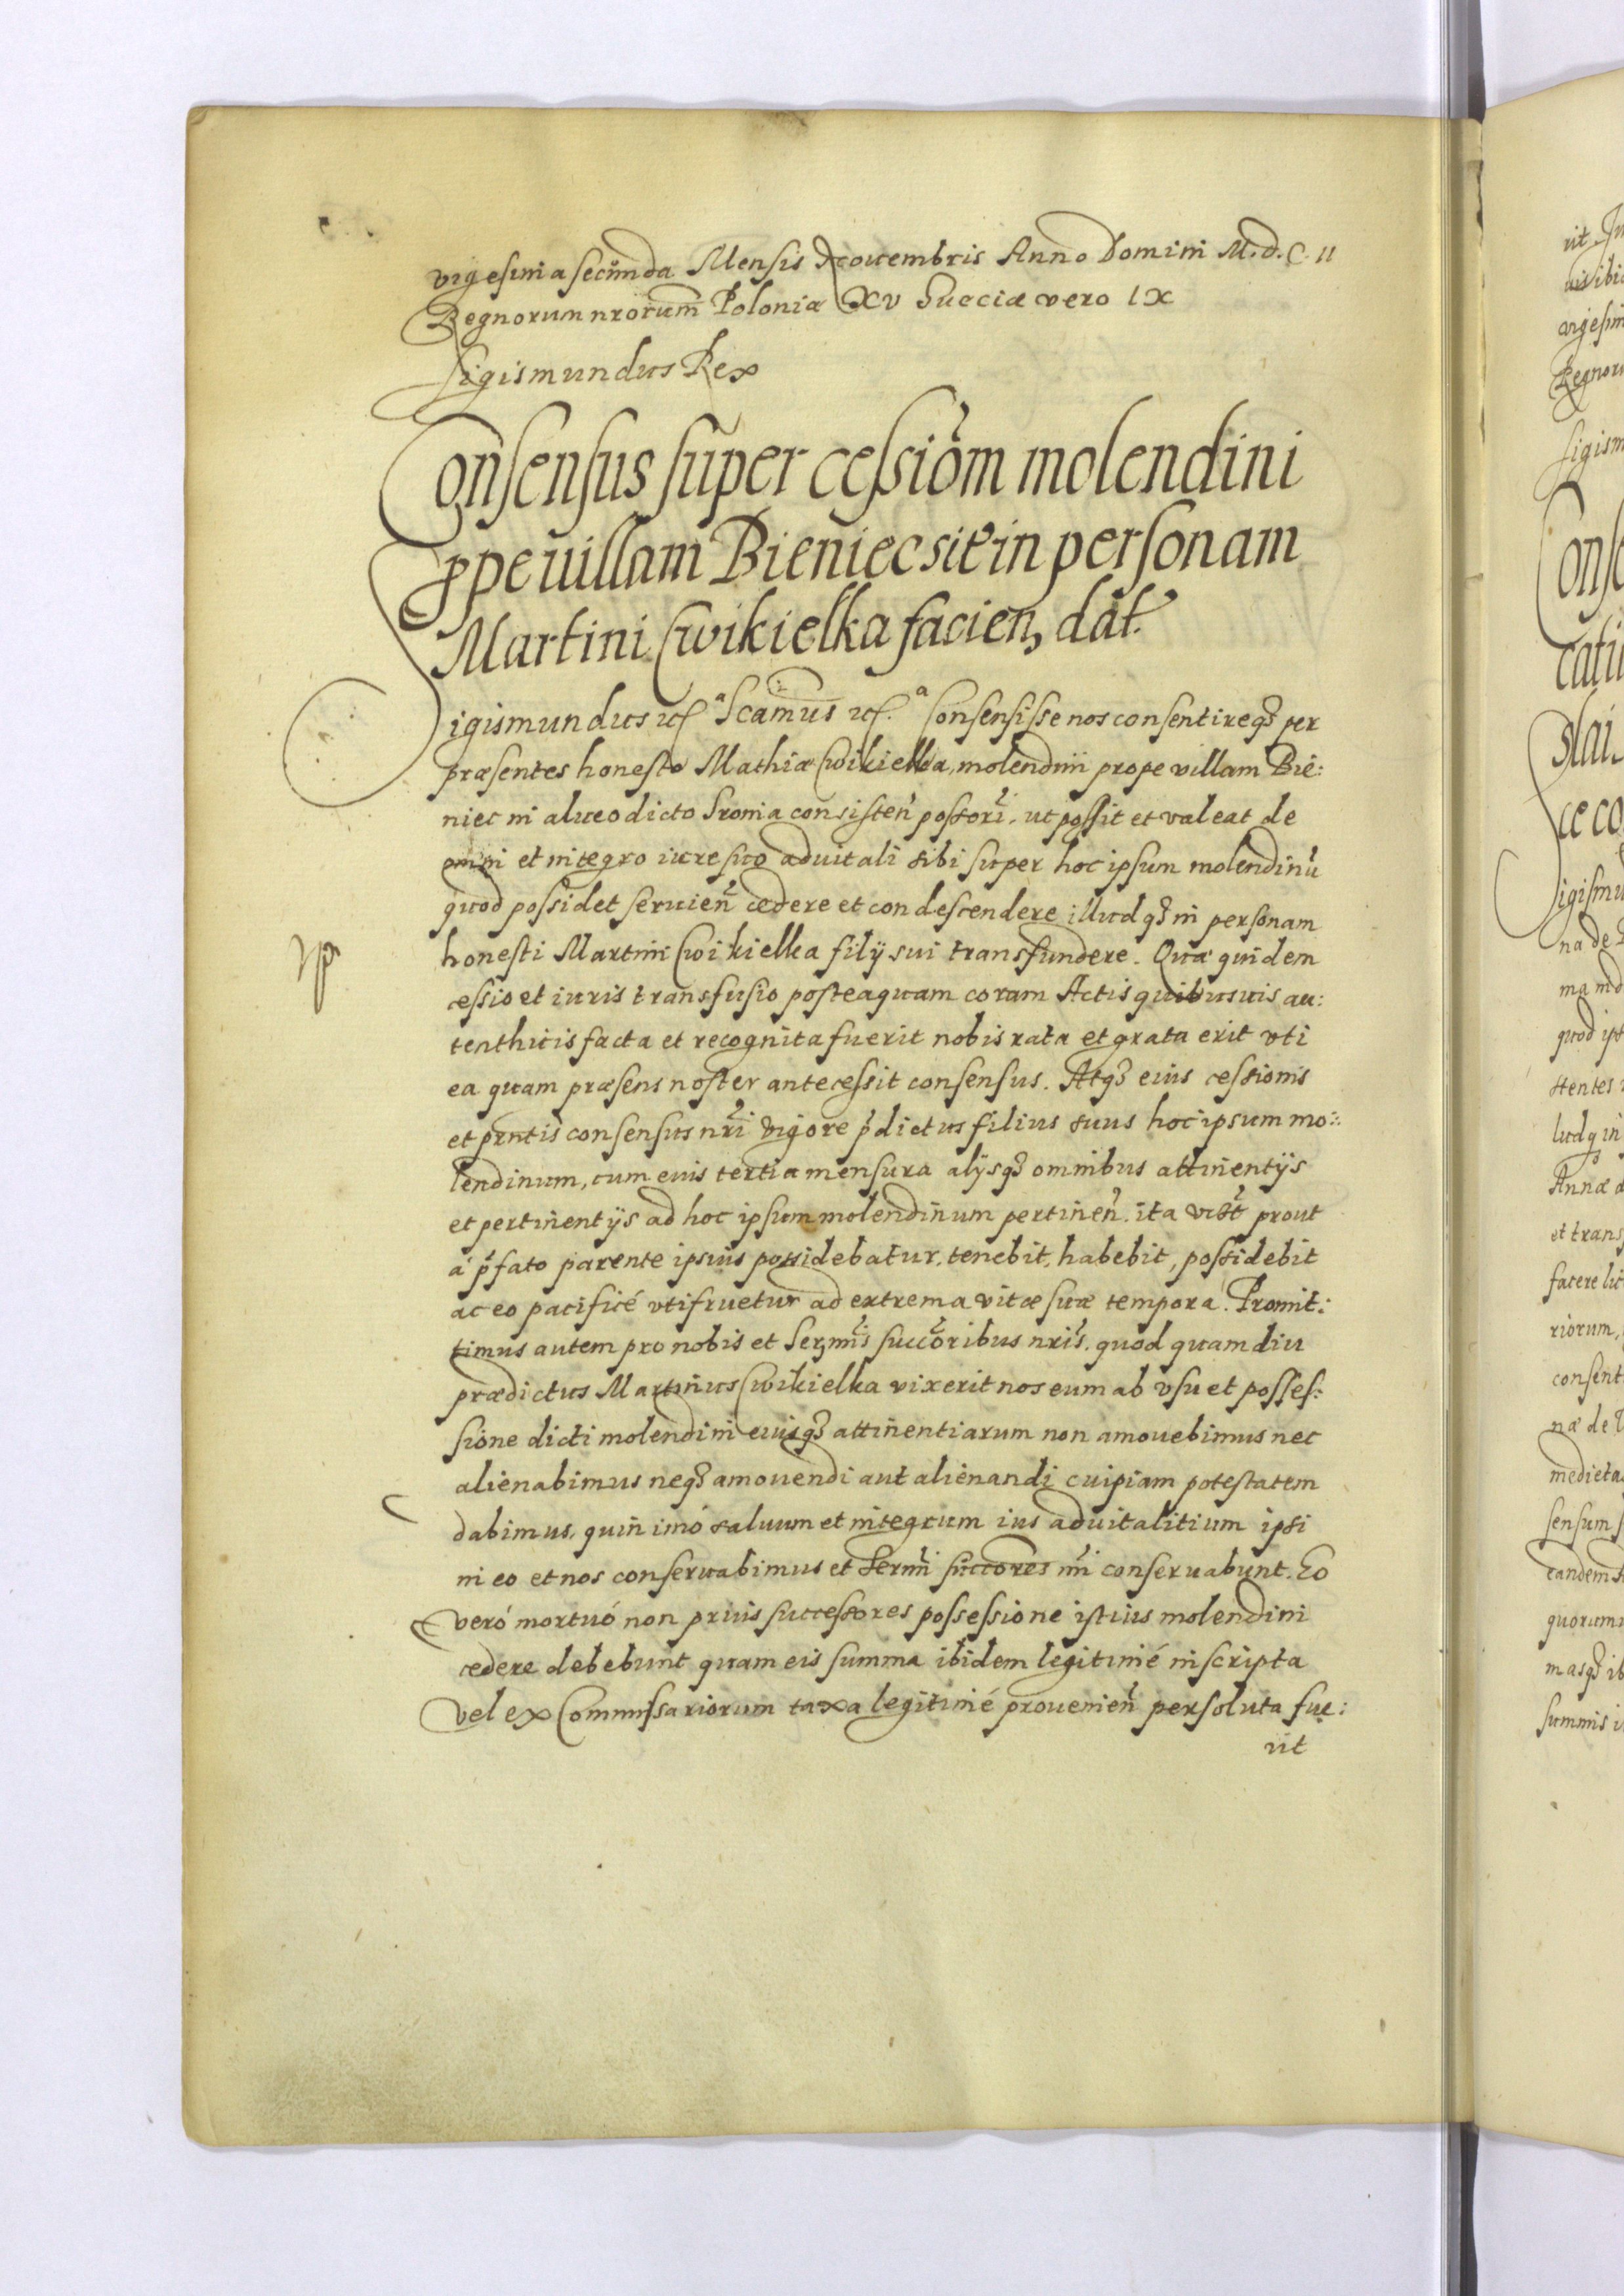 vigesima secunda Mensis Nouembris Anno Domini M.d.C.II
Regnorum nrorum Poloniæ XV Sueciæ vero IX
Sigismundus Rex
Consensus super cessiom molendini
ppe uillam Bieniec sit in personam
Martini Cwikielka facien, dat.
Sigismundus etc. Scamus etc. Consensisse nos consentireq per
præsentes honesto Mathiæ Cwikielka, molendini prope villam Bie:
niec in alueo dicto Sronia consisten possori. ut possit et valeat de
omni et integro iure suo aduitali sibi super hoc ipsum molendinu
quod possidet seruien cedere et condescendere illudq in personam
honesti Martini Cwikielka filÿ sui transfundere. Quæ quidem
vp
cessio et iuris transfusio posteaquam coram Actis quibusuis au:
tenthicis facta et recognita fuerit nobis rata et grata erit vti
ea quam præsens noster antecessit consensus. Atq eius cessionis
et prntis consensus nri vigore pdictus filius suus hoc ipsum mo:
lendinum, cum eius tertia mensura alÿsq omnibus attinentÿs
et pertinentÿs ad hoc ipsum molendinum pertinen. ita vt prout
á pfato parente ipsius possidebatur. tenebit, habebit, possidebit
ac eo pacificé vtifruetur ad extrema vitæ suæ tempora. Promit:
timus autem pro nobis et Sermis succoribus nris. quod quamdiu
prædictus Martinus Cwikielka vixerit nos eum ab vsu et posses:
sione dicti molendini eiusq attinentiarum non amouebimus nec
alienabimus neq amouendi aut alienandi cuipiam potestatem
dabimus, quin imó saluum et integrum ius aduitalitium ipsi
in eo et nos conseruabimus et Sermi succores nri conseruabunt. Eo
veró mortuó non prius successores possessione istius molendini
cedere debebunt quam eis summa ibidem legitimé inscripta
vel ex Commissariorum taxa legitimé prouenien persoluta fue:
rit